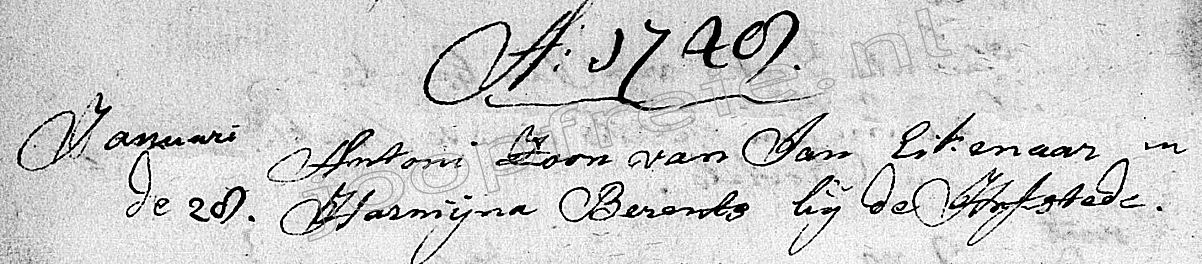 A: 1748.
Januari Antoni Zoon van Jan Eikenaar en
de 28. Harmijna Berents bij de Hofstede.
joopfreie.nl